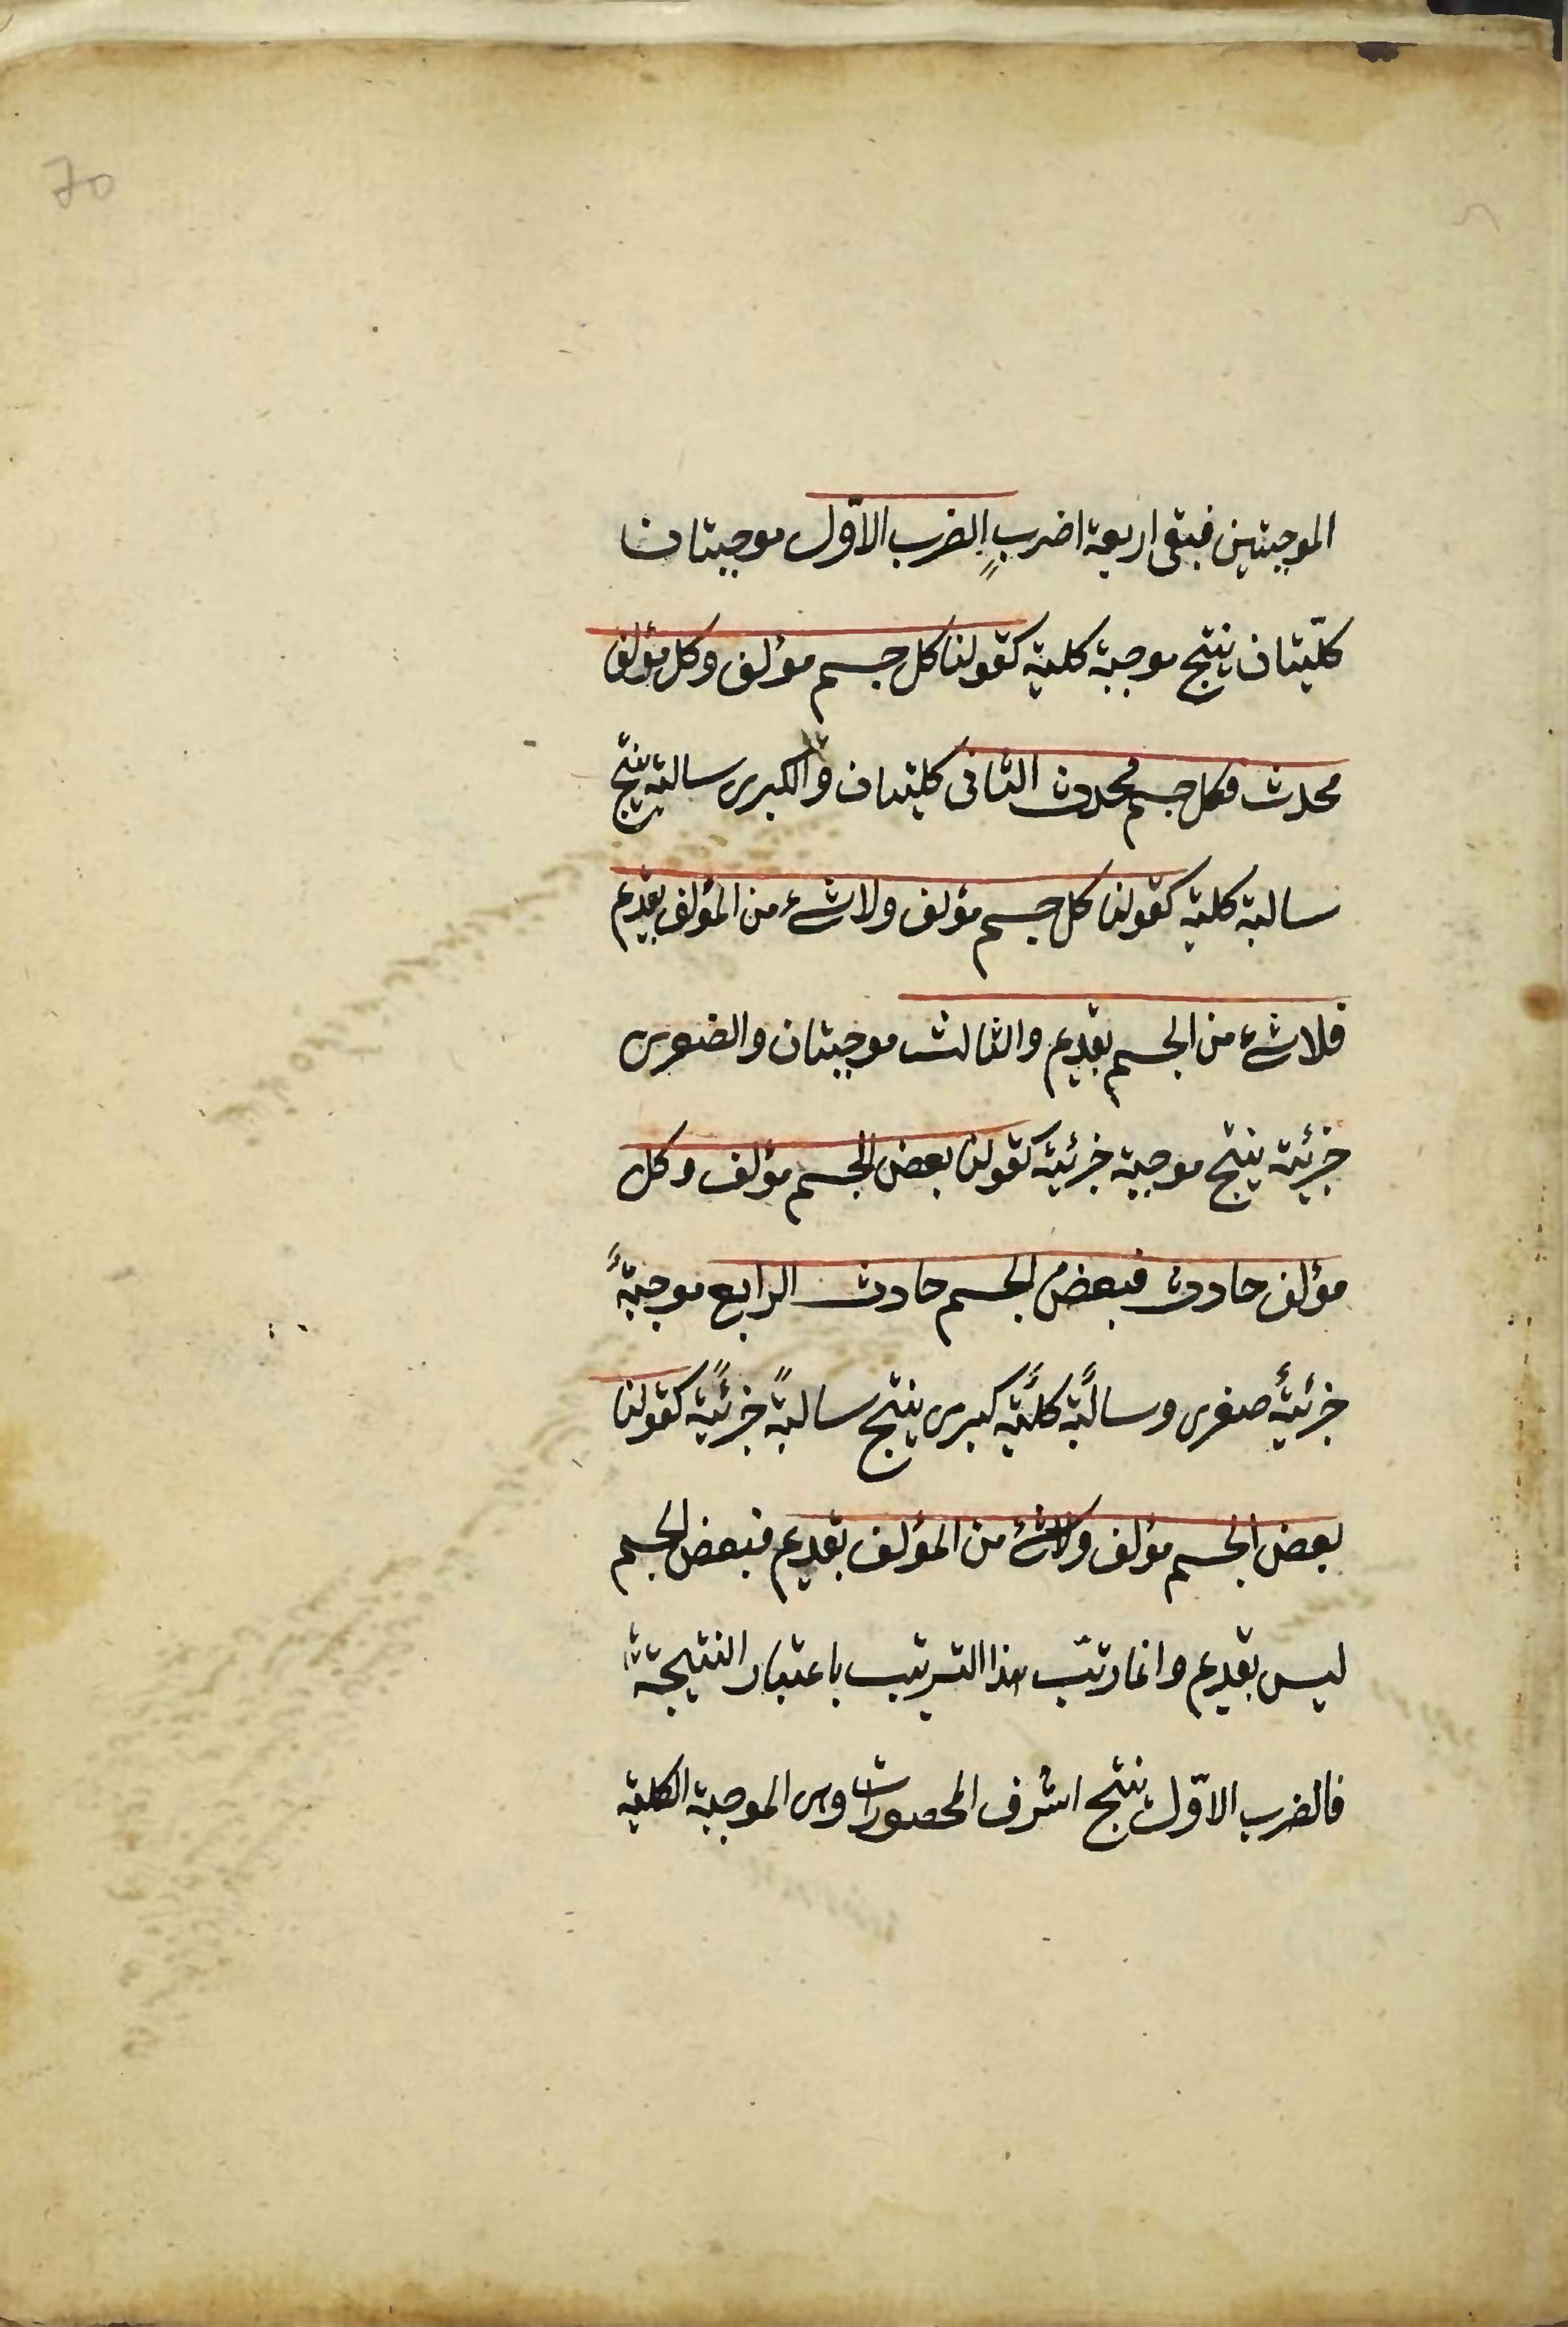 70
الموجبتين فبقى اربعة اضربٍ الضرب الاوّل موجبتان
كلّيتان ينتج موجبة كلية كقولنا كل جسم مؤلف وكل مؤلف
محدث فكل جسم محدث الثانى كليتان والكبرى سالبة ينتج
سالبة كلية كقولنا كل جسم مؤلف ولا شئ من المؤلف بقديم
فلا شئ من الجسم بقديم والثالث موجبتان والصغرى
جزئية ينتج موجبة جزئية كقولنا بعض الجسم مؤلف وكل
مؤلف حادث فبعض الجسم حادث الرابع موجبةً
جزئيةً صغرى وسالبةً كليّةً كبرى ينتج سالبةً جزئيةً كقولنا
بعض الجسم مؤلف ولا شئ من المؤلف بقديم فبعض الجسم
ليس بقديم وانما رتّب هذا الترتيب باعتبار النتيجة
فالضرب الاوّل ينتج اشرف المحصورات وهى الموجبة الكلية